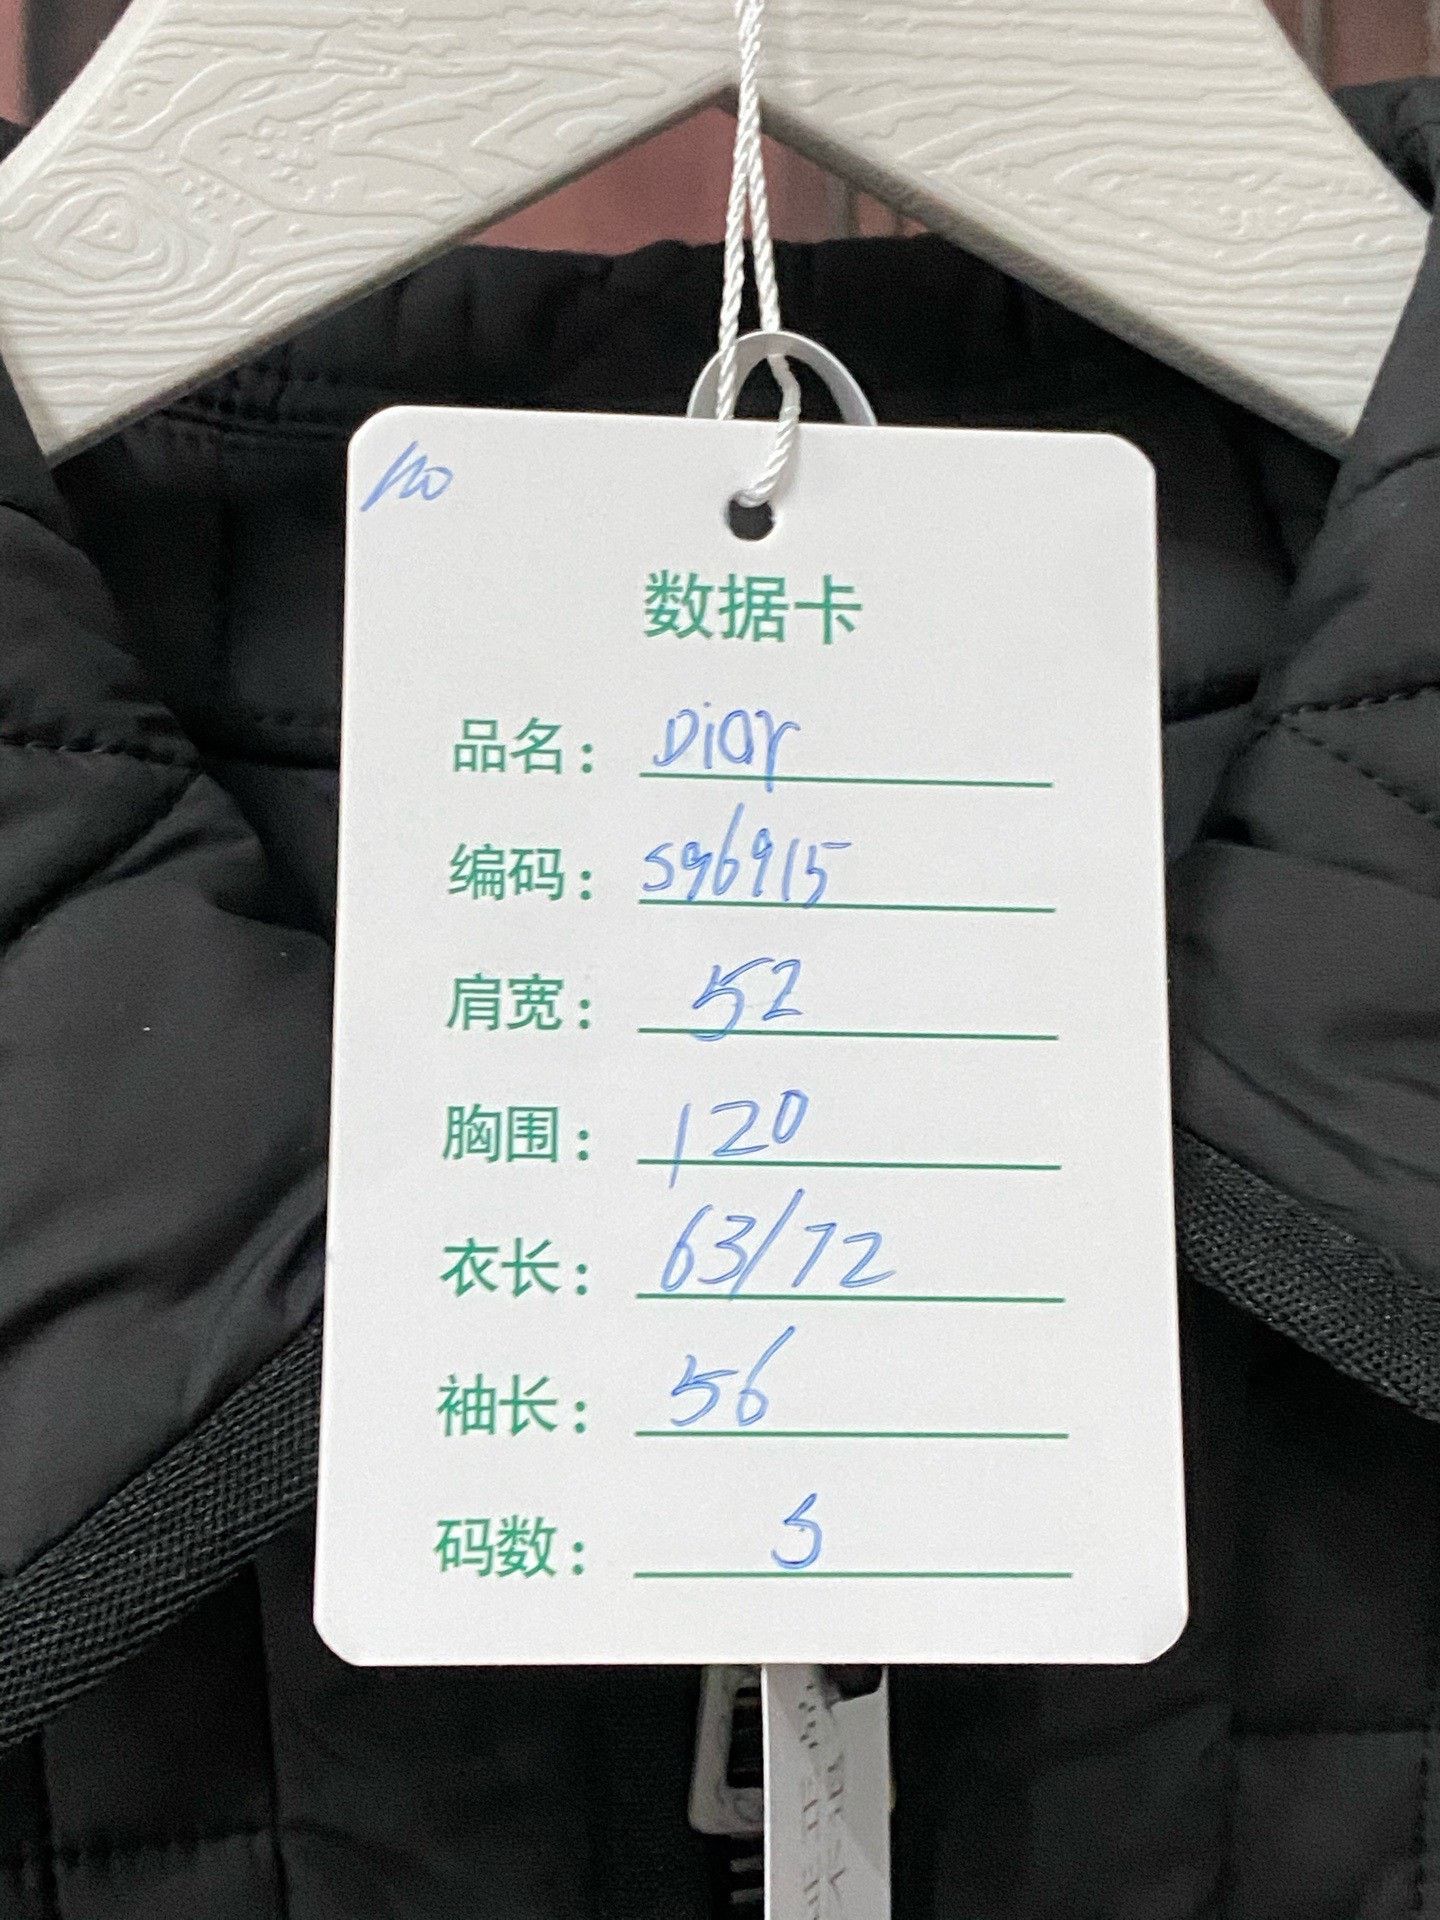 数据卡
品名：Dior
编码：S96915
肩宽：52
胸围：120
衣长：63/72
袖长：56
码数：S